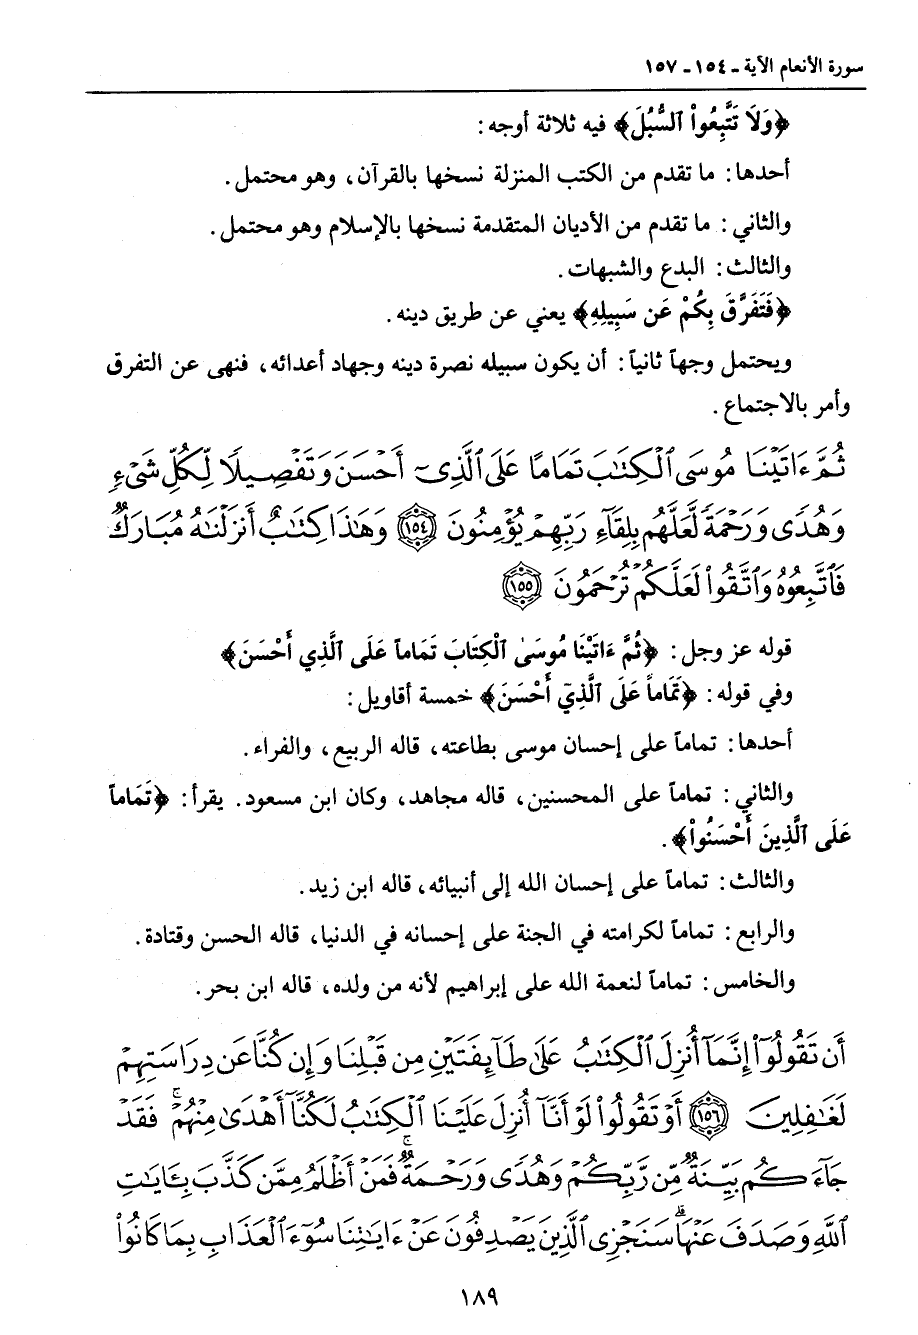 سورة الأنعام الآية ـ ١٥٤ ـ ١٥٧
﴿وَلَا تَتَّبِعُواْ ٱلسُّبُلَ﴾ فيه ثلاثة أوجه:
أحدها: ما تقدم من الكتب المنزلة نسخها بالقرآن، وهو محتمل.
والثاني: ما تقدم من الأديان المتقدمة نسخها بالإسلام وهو محتمل.
والثالث: البدع والشبهات.
﴿فَتَفَرَّقَ بِكُمْ عَن سَبِيلِهِ﴾ يعني عن طريق دينه.
ويحتمل وجهاً ثانياً: أن يكون سبيله نصرة دينه وجهاد أعدائه، فنهى عن التفرق
وأمر بالاجتماع.
ثُمَّ ءَاتَيْنَا مُوسَى ٱلْكِتَٰبَ تَمَامًا عَلَى ٱلَّذِىٓ أَحْسَنَ وَتَفْصِيلًا لِّكُلِّ شَىْءٍ
وَهُدًى وَرَحْمَةً لَّعَلَّهُم بِلِقَآءِ رَبِّهِمْ يُؤْمِنُونَ ١٥٤ وَهَٰذَا كِتَٰبٌ أَنزَلْنَٰهُ مُبَارَكٌ
فَٱتَّبِعُوهُ وَٱتَّقُواْ لَعَلَّكُمْ تُرْحَمُونَ ١٥٥
قوله عز وجل: ﴿ثُمَّ ءَاتَيْنَا مُوسَىٰ ٱلْكِتَابَ تَمَاماً عَلَى ٱلَّذِي أَحْسَنَ﴾
وفي قوله: ﴿تَمَاماً عَلَى ٱلَّذِيٓ أَحْسَنَ﴾ خمسة أقاويل:
أحدها: تماماً على إحسان موسى بطاعته، قاله الربيع، والفراء.
والثاني: تماماً على المحسنين، قاله مجاهد، وكان ابن مسعود. يقرأ: ﴿تَمَاماً
عَلَى ٱلَّذِينَ أَحْسَنُواْ﴾.
والثالث: تماماً على إحسان الله إلى أنبيائه، قاله ابن زيد.
والرابع: تماماً لكرامته في الجنة على إحسانه في الدنيا، قاله الحسن وقتادة.
والخامس: تماماً لنعمة الله على إبراهيم لأنه من ولده، قاله ابن بحر.
أَن تَقُولُوٓاْ إِنَّمَآ أُنزِلَ ٱلْكِتَٰبُ عَلَىٰ طَآئِفَتَيْنِ مِن قَبْلِنَا وَإِن كُنَّا عَن دِرَاسَتِهِمْ
لَغَٰفِلِينَ ١٥٦ أَوْ تَقُولُواْ لَوْ أَنَّآ أُنزِلَ عَلَيْنَا ٱلْكِتَٰبُ لَكُنَّآ أَهْدَىٰ مِنْهُمْ ۚ فَقَدْ
جَآءَكُم بَيِّنَةٌ مِّن رَّبِّكُمْ وَهُدًى وَرَحْمَةٌ ۚ فَمَنْ أَظْلَمُ مِمَّن كَذَّبَ بِـَٔايَٰتِ
ٱللَّهِ وَصَدَفَ عَنْهَا ۗ سَنَجْزِى ٱلَّذِينَ يَصْدِفُونَ عَنْ ءَايَٰتِنَا سُوٓءَ ٱلْعَذَابِ بِمَا كَانُواْ
١٨٩